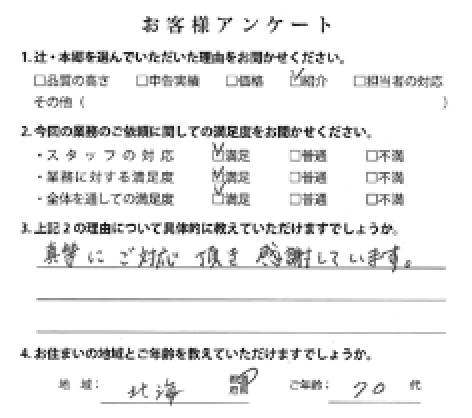 お客様アンケート
1. 辻・本郷を選んでいただいた理由をお聞かせください。
□品質の高さ □申告実績 □価格 ☑紹介 □担当者の対応
その他（ ）
2. 今回の業務のご依頼に関しての満足度をお聞かせください。
・スタッフの対応 ☑満足 □普通 □不満
・業務に対する満足度 ☑満足 □普通 □不満
・全体を通しての満足度 ☑満足 □普通 □不満
3. 上記2の理由について具体的に教えていただけますでしょうか。
真摯にご対応頂き感謝しています。
4. お住まいの地域とご年齢を教えていただけますでしょうか。
地域： 北海 ご年齢： 70 代